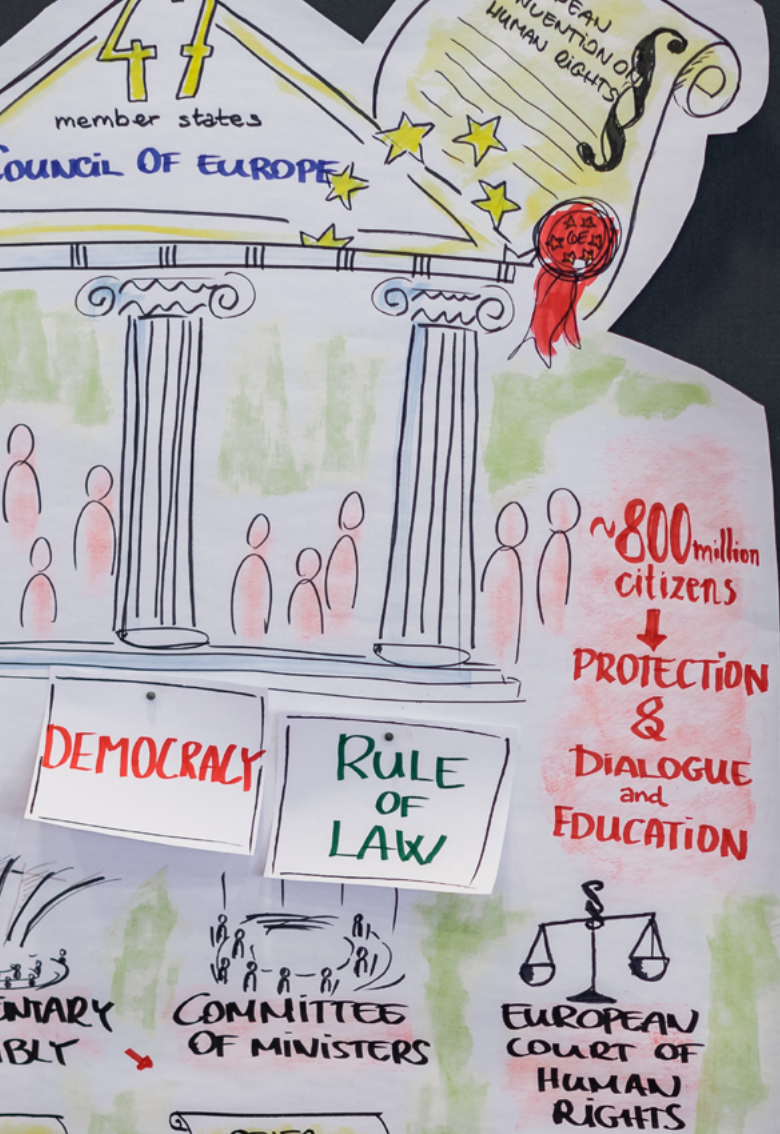 47
member states
COUNCIL OF EUROPE
HUMAN RIGHTS
§
~800 million
citizens
PROTECTION
&
DIALOGUE
and
EDUCATION
DEMOCRACY
RULE
OF
LAW
COMMITTEE
OF MINISTERS
§
EUROPEAN
COURT OF
HUMAN
RIGHTS